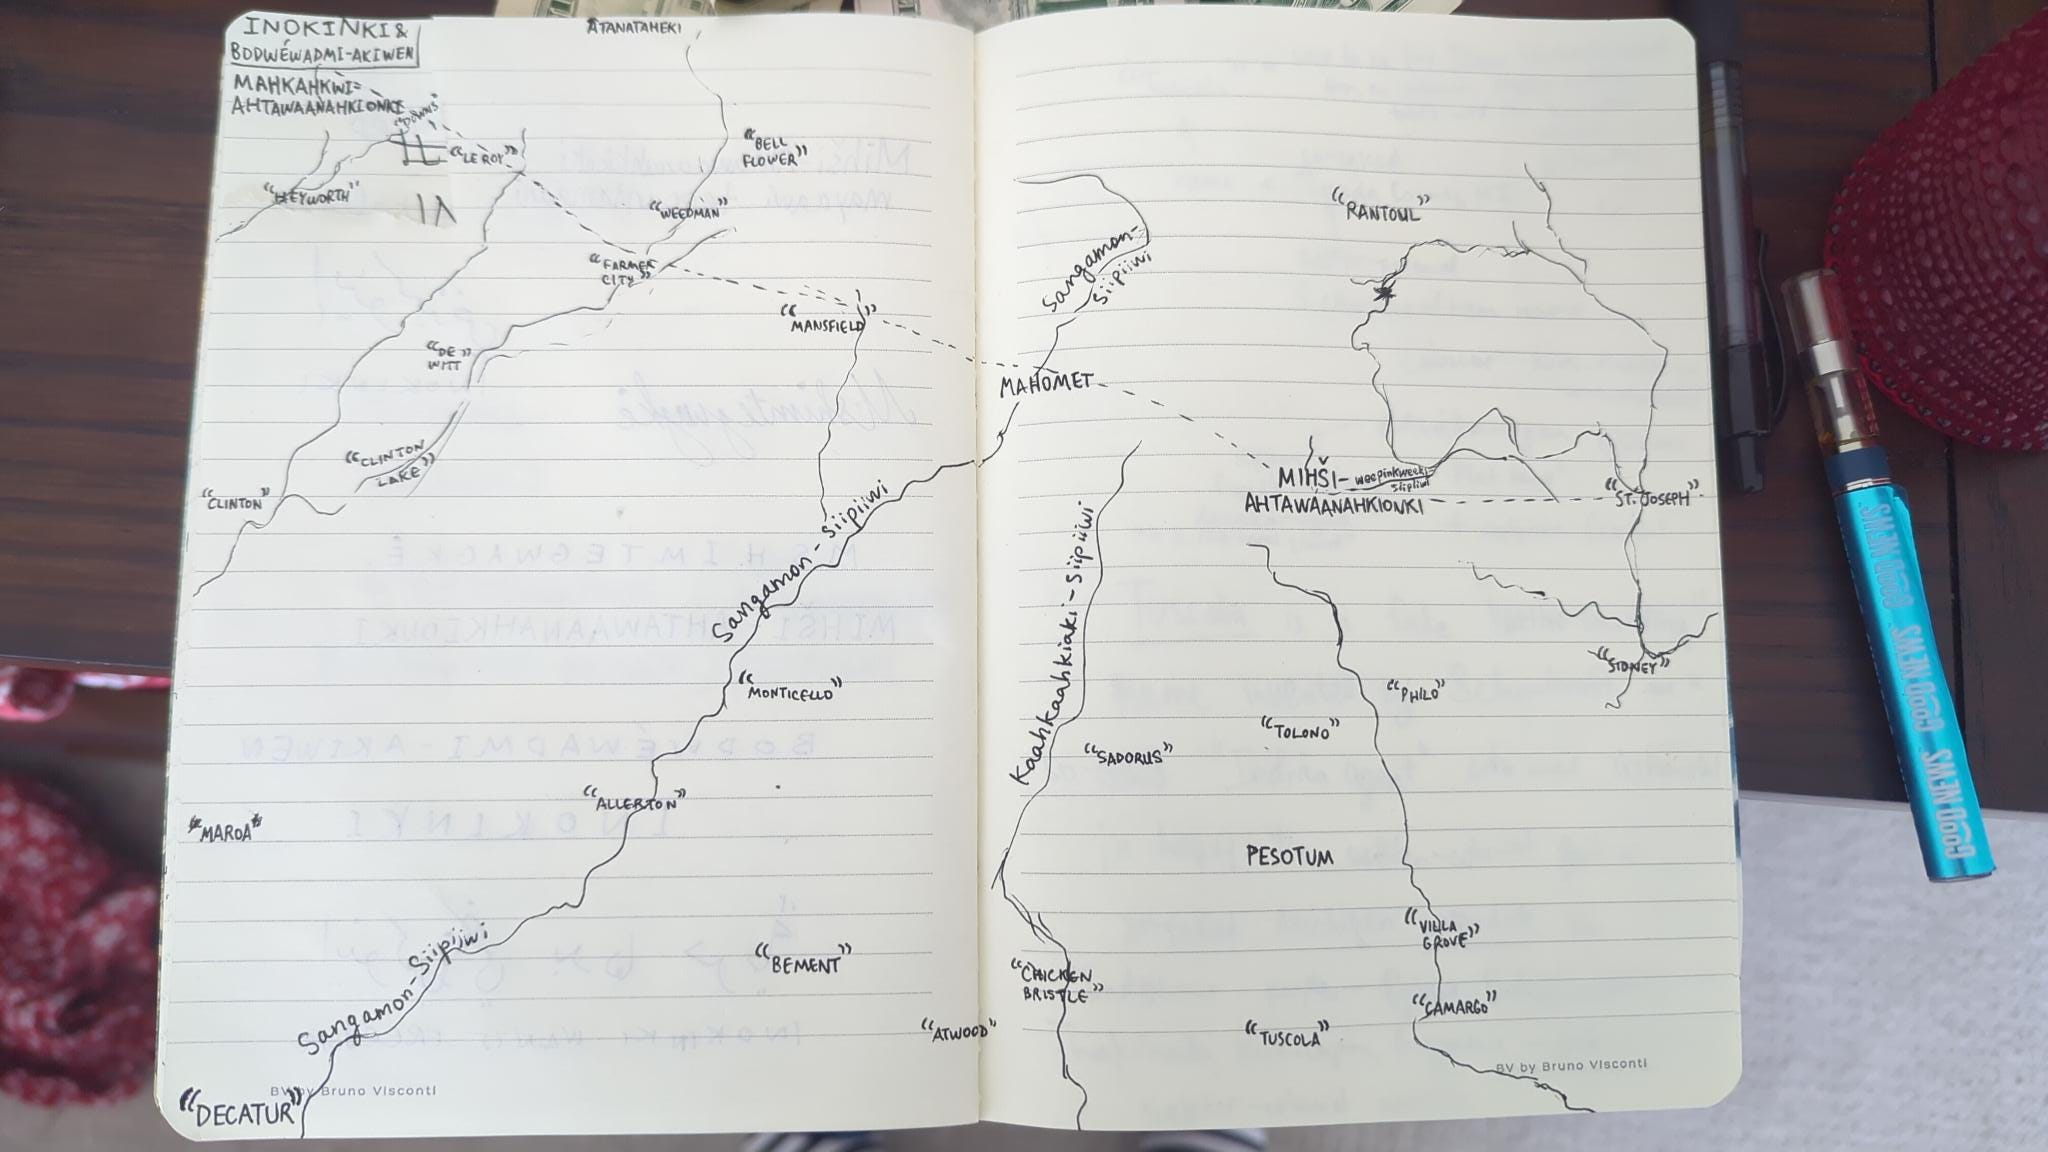 INOKINKI &
BODWÉWADMI-AKIWEN
MAHKAHKWI-
AHTAWAANAHKIONKI
ATANATAHEKI
"DOWNS"
"LE ROY"
"HEYWORTH"
"BELL
FLOWER"
"WEEDMAN"
"FARMER
CITY"
"MANSFIELD"
"DE
WITT"
"CLINTON
LAKE"
"CLINTON"
Sangamon-Siipiiwi
"MONTICELLO"
"ALLERTON"
"MAROA"
Sangamon-Siipiiwi
"BEMENT"
"DECATUR"
BV by Bruno Visconti
"ATWOOD"
Sangamon-
Siipiiwi
"RANTOUL"
MAHOMET
MIHŠI-
weepinkweeki-
siipiiwi
AHTAWAANAHKIONKI
"ST. JOSEPH"
Kaahkaahkiaki-Siipiiwi
"SIDNEY"
"PHILO"
"TOLONO"
"SADORUS"
PESOTUM
"VILLA
GROVE"
"CHICKEN
BRISTLE"
"CAMARGO"
"TUSCOLA"
BV by Bruno Visconti
GOOD NEWS GOOD NEWS GOOD NEWS